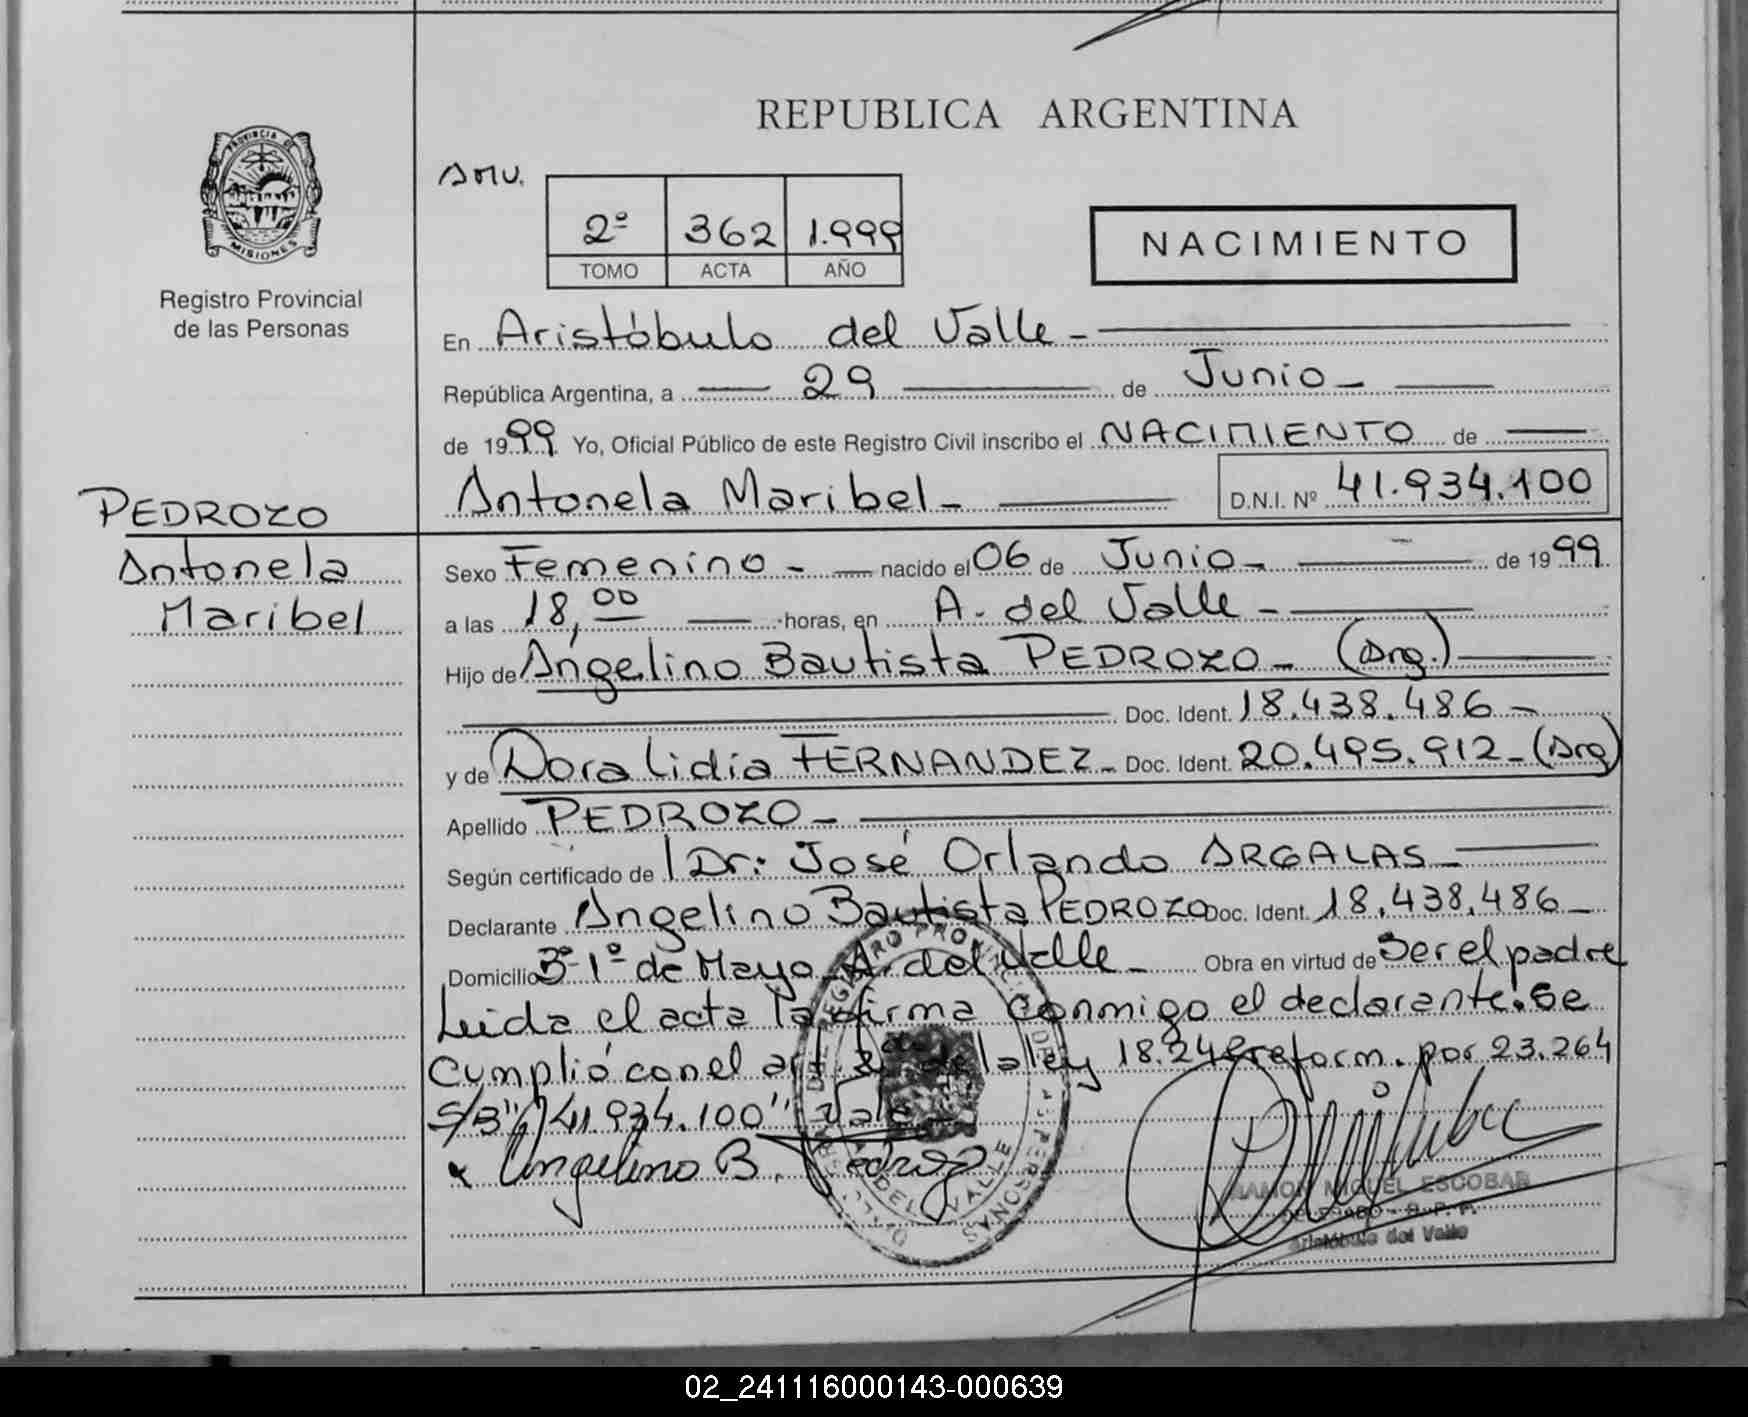 REPUBLICA ARGENTINA
PROVINCIA DE
MISIONES
Registro Provincial
de las Personas
AMV.
2º 362 1.999
TOMO ACTA AÑO
NACIMIENTO
En Aristóbulo del Valle -
República Argentina, a 29 de Junio -
de 1999 Yo, Oficial Público de este Registro Civil inscribo el NACIMIENTO de
Antonela Maribel - D.N.I. Nº 41.934.100
PEDROZO
Antonela
Maribel
Sexo Femenino - nacido el 06 de Junio - de 1999
a las 18,00 horas, en A. del Valle -
Hijo de Angelino Bautista PEDROZO - (Arg.)
Doc. Ident. 18.438.486 -
y de Dora Lidia FERNANDEZ - Doc. Ident. 20.495.912 - (Arg)
Apellido PEDROZO -
Según certificado de Dr: José Orlando ARGALAS -
Declarante Angelino Bautista PEDROZO Doc. Ident. 18.438.486 -
Domicilio Bº 1º de Mayo - A. del Valle - Obra en virtud de Ser el padre
Leida el acta la firma conmigo el declarante. Se
Cumplió con el art. de la ley 18.248 reform. por 23.264
S/B "41.934.100" Vale -
Angelino B. Pedrozo
RAMON MIGUEL ESCOBAR
DELEGADO - R. P. P.
Aristóbulo del Valle
02_241116000143-000639